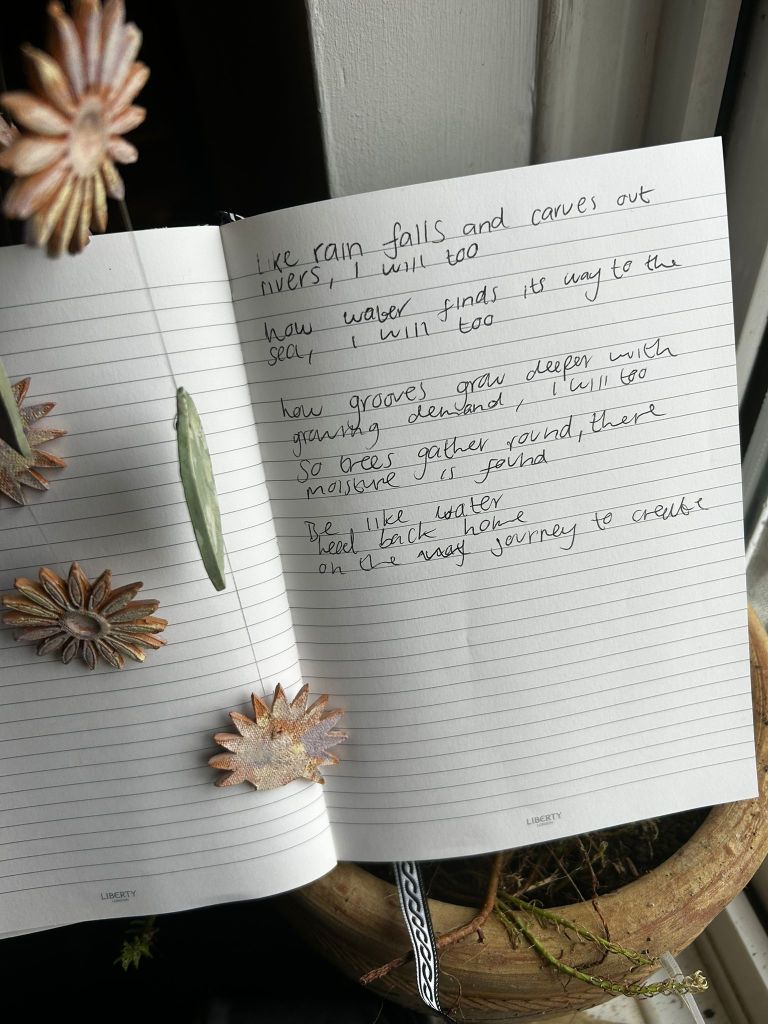 Like rain falls and carves out
rivers, I will too
how water finds its way to the
sea, I will too
how grooves grow deeper with
growing demand, I will too
So trees gather round, there
moisture is found
Be like water
head back home
on the way journey to create
LIBERTY
LONDON
LIBERTY
LONDON